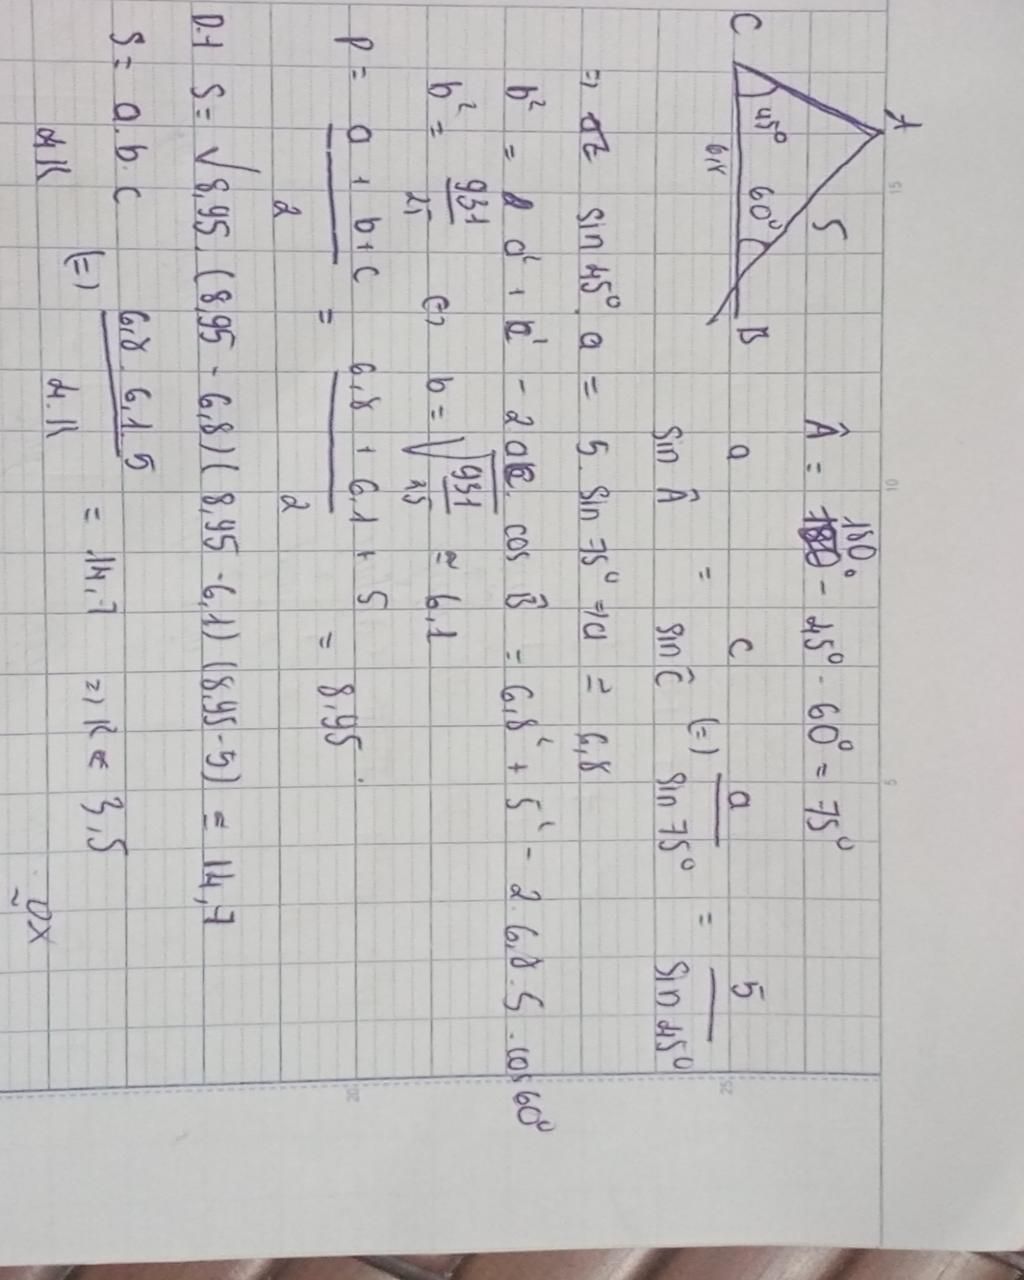 A
5
C 45° 60° B
6,8
Â = 180° - 45° - 60° = 75°
a / sin Â = c / sin Ĉ (=) a / sin 75° = 5 / sin 45°
=> sin 45° . a = 5 . sin 75° => a ≃ 6,8
b² = a² + c² - 2ac . cos B̂ = 6,8² + 5² - 2 . 6,8 . 5 . cos 60°
b² = 931 / 25 (=) b = √931 / 25 ≃ 6,1
P = a + b + c / 2 = 6,8 + 6,1 + 5 / 2 = 8,95
D.t S = √8,95 . (8,95 - 6,8) (8,95 - 6,1) (8,95 - 5) ≃ 14,7
S = a.b.c / 4R (=) 6,8 . 6,1 . 5 / 4.R = 14,7 => R ≃ 3,5
15
10
5
25
20